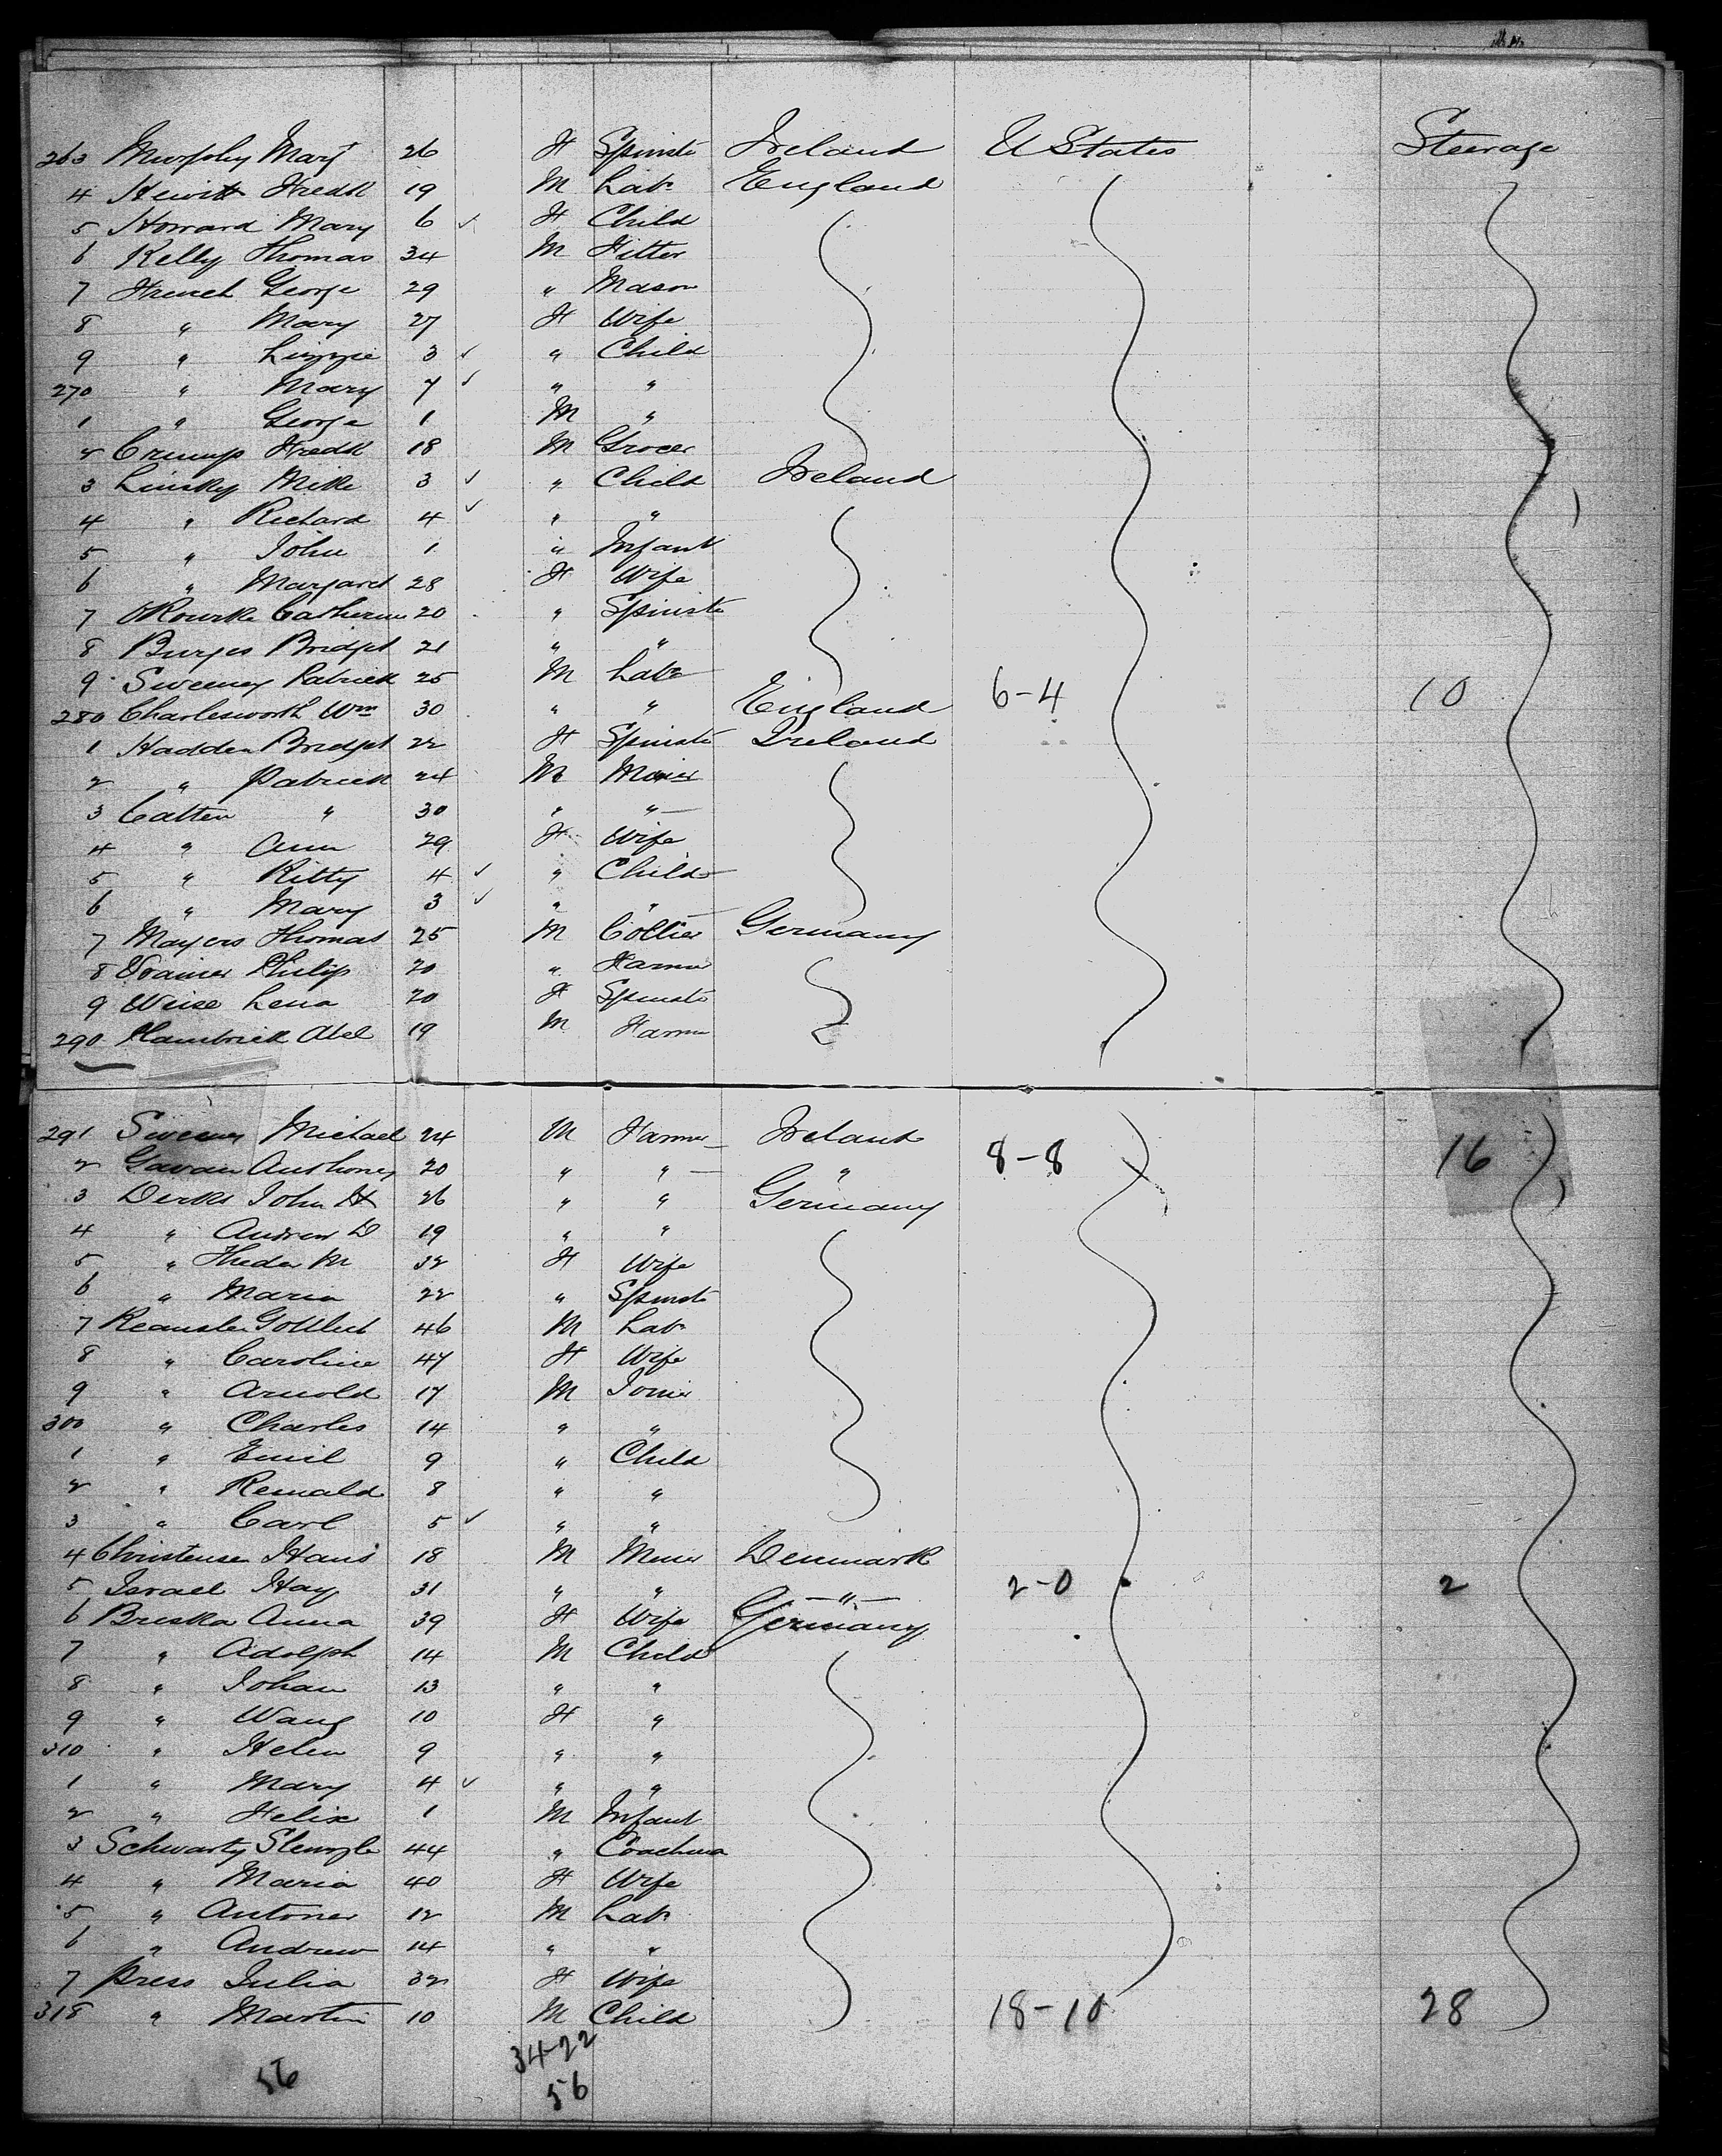 263 Murphy Mary 26 F Spinstr Ireland U States Steerage
4 Hewitt Fredk 19 M Labr England
5 Howard Mary 6 ✓ F Child
6 Kelly Thomas 34 M Fitter
7 French George 29 " Mason
8 " Mary 27 F Wife
9 " Lizzie 3 ✓ " Child
270 " Mary 7 ✓ " "
1 " George 1 M "
2 Crump Fredk 18 M Grocer
3 Linsky Mike 3 ✓ " Child Ireland
4 " Richard 4 ✓ " "
5 " John 1 " Infant
6 " Margaret 28 F Wife
7 ORourke Catherine 20 " Spinstr
8 Burges Bridget 21 " "
9 Sweeney Patrick 25 M Labr
280 Charlesworth Wm 30 " " England 6-4 10
1 Hadden Bridget 22 F Spinstr Ireland
2 " Patrick 24 M Miner
3 Catten " 30 " "
4 " Ann 29 F Wife
5 " Kitty 4 ✓ " Child
6 " Mary 3 ✓ " "
7 Mayers Thomas 25 M Collier Germany
8 Philip 20 " Farmer
9 Weise Lena 20 F Spinstr
290 Hambrick Abel 19 M Farmer
291 Sweeney Michael 24 M Farmer Ireland 8-8 16
2 Gavan Anthoney 20 " " "
3 Derks John H 26 " " Germany
4 " Andrew D 19 " "
5 " Theda M 32 F Wife
6 " Maria 22 " Spinstr
7 Gottlieb 46 M Labr
8 " Caroline 47 F Wife
9 " Arnold 17 M Joiner
300 " Charles 14 " "
1 " Emil 9 " Child
2 " Reinald 8 " "
3 " Carl 5 ✓ " "
4 Christensen Hans 18 M Miner Denmark
5 Israel Hay 31 " " " 2-0 2
6 Breska Anna 39 F Wife Germany
7 " Adolph 14 M Child
8 " Johan 13 " "
9 " Wang 10 F "
310 " Helen 9 " "
1 " Mary 4 ✓ " "
2 " Felix 1 M Infant
3 Schwartz 44 " Coachma
4 " Maria 40 F Wife
5 " Antoner 12 M Labr
6 " Andrew 14 " "
7 Press Julia 32 F Wife
318 " Martin 10 M Child 18-10 28
34-22
56 56